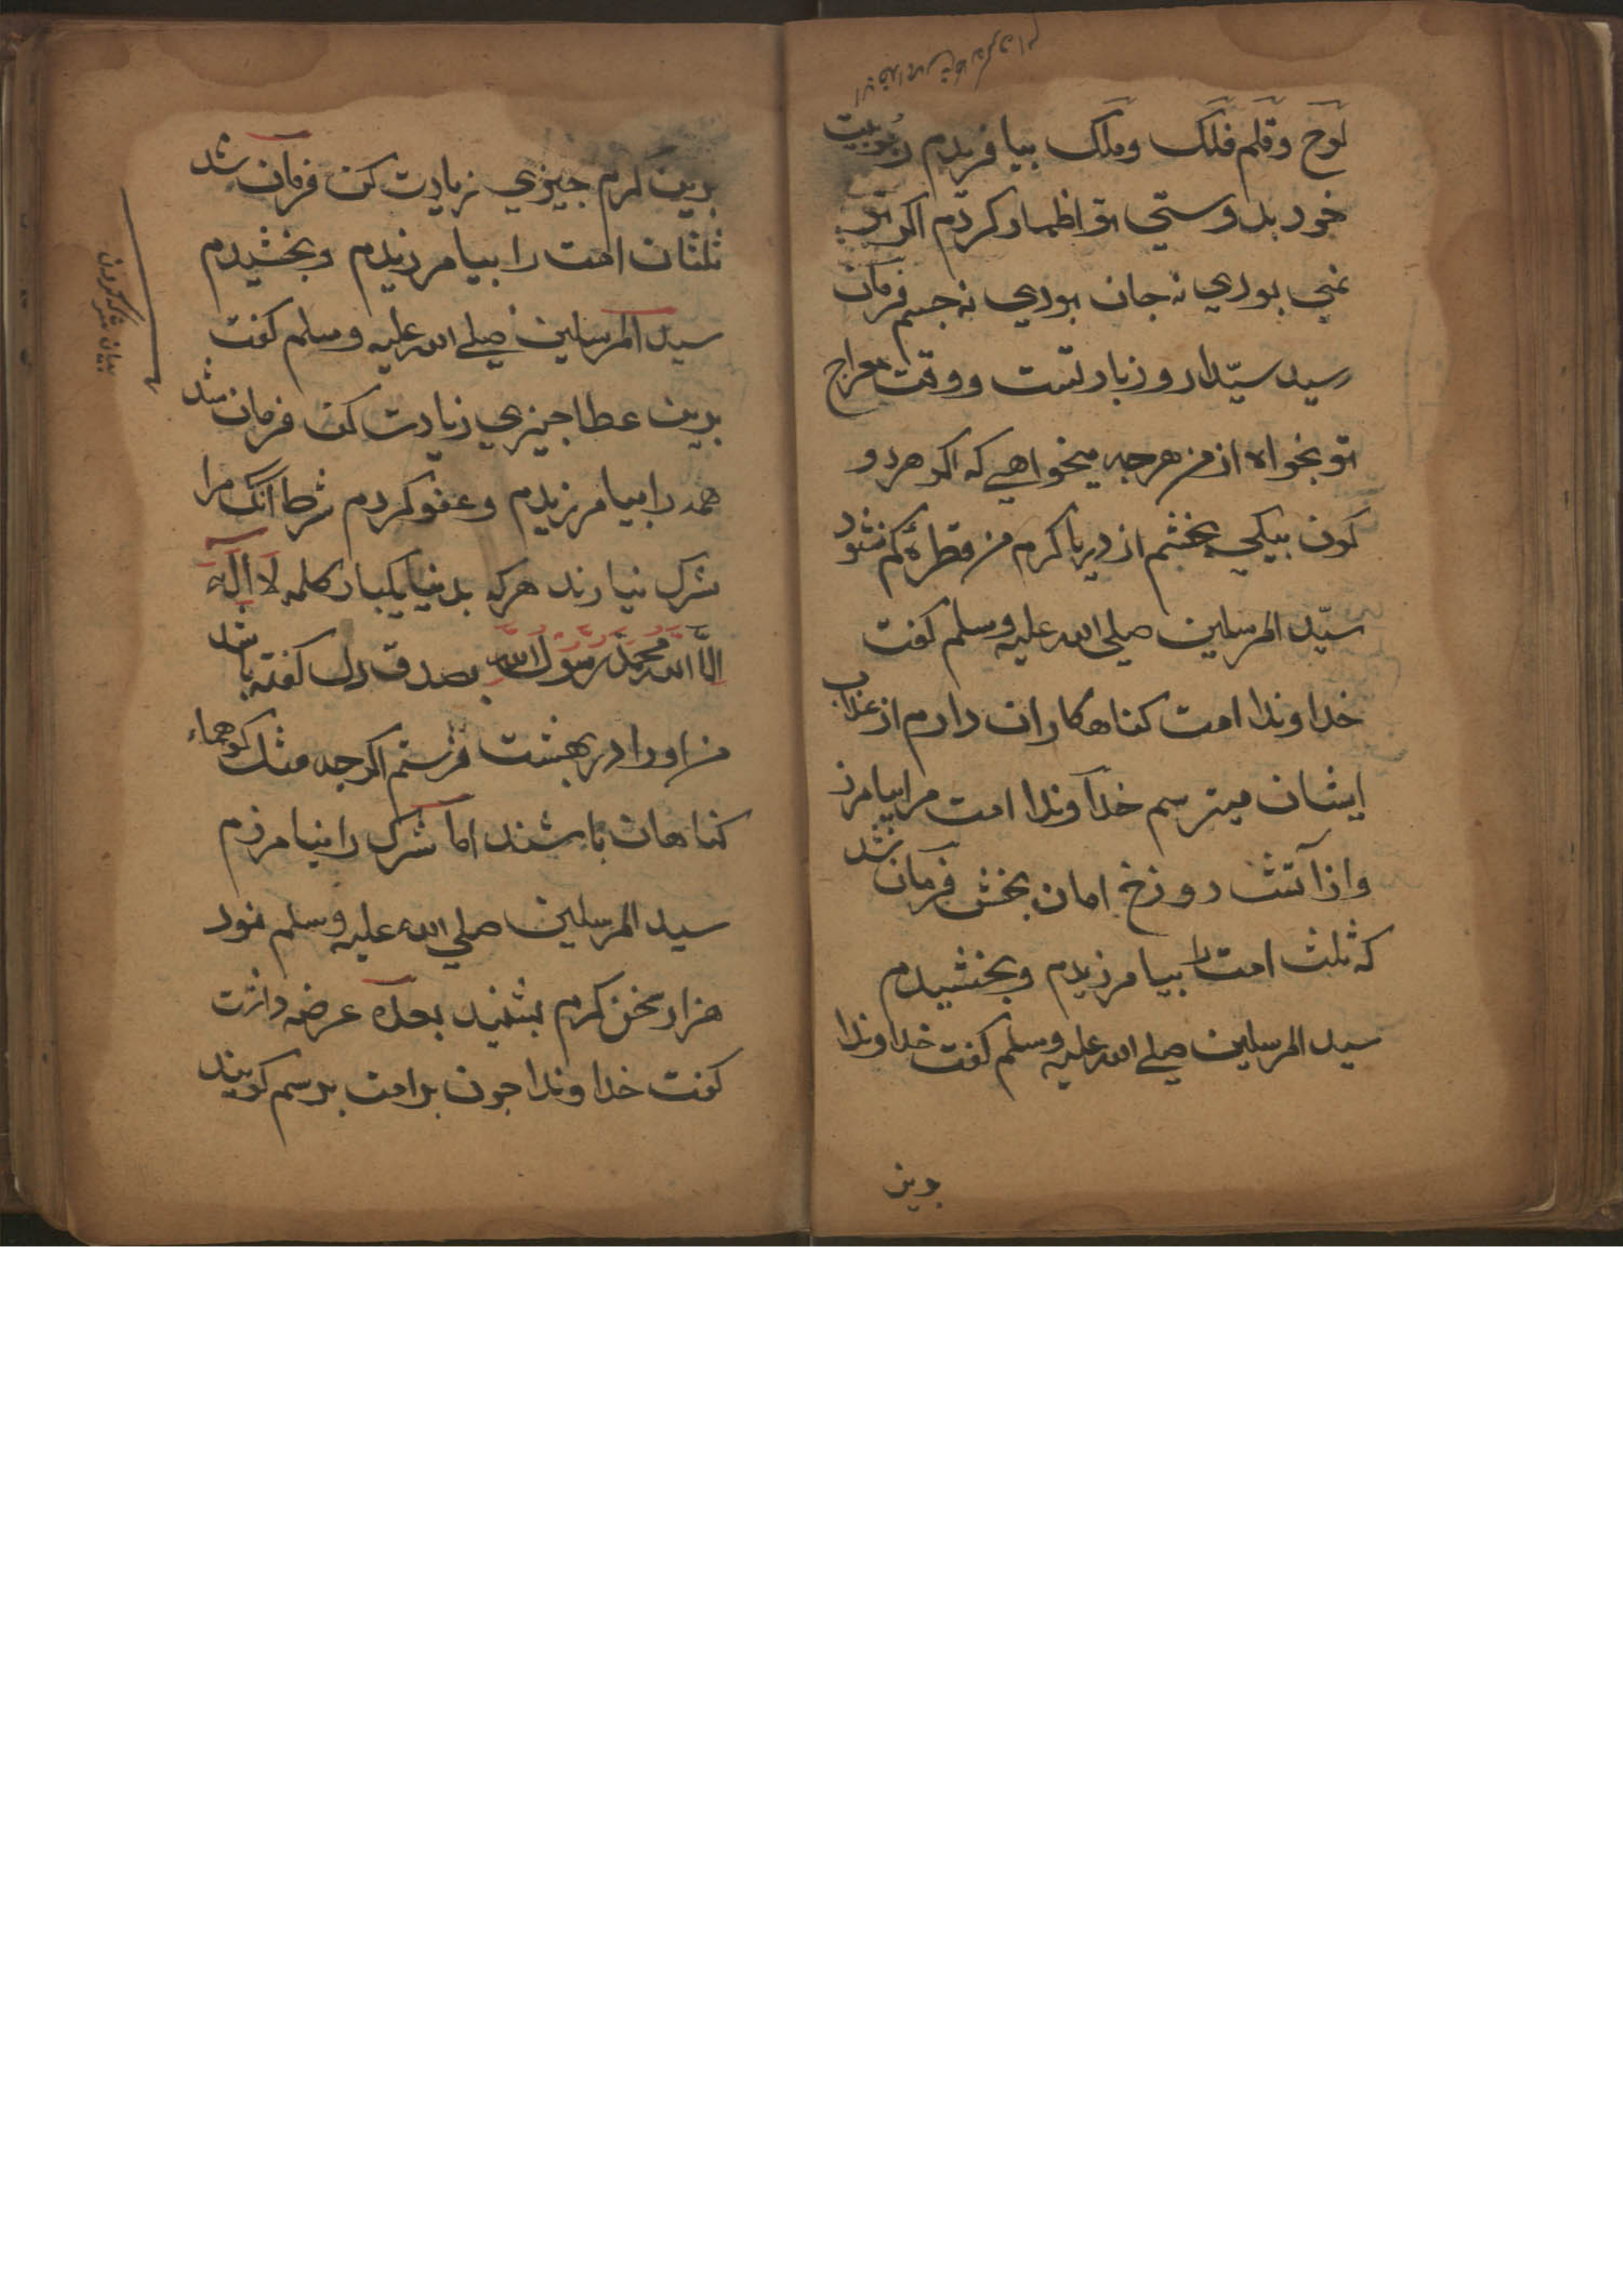 لوح و قلم فلک وملک بیافریدم ربوبیت
خود بدوستی تو اظهار کردم اکر تو
نمی بودی نه جان بودی نه جسم فرمان
رسید سیدا روز بار تست و وقت معراج
تو بخواه از من هرجه میخواهی که اکر هر دو
کون بیکی بخشم از دریا کرم من قطرۀ کم نشود
سیّد المرسلین صلی الله علیه وسلم کفت
خداوندا امت کناهکاران دارم از عذاب
ایشان میترسم خداوندا امت مرا بیامرز
واز آتش دوزخ امان بخش فرمان شد
که ثلث امت را بیامرزیدم وبخشیدم
سید المرسلین صلی الله علیه وسلم کفت خداوندا
بدین
بدین کرم جیزی زیادت کن فرمان شد
ثلثان امت را بیامرزیدم وبخشیدم
سید المرسلین صلی الله علیه وسلم کفت
بدین عطا جیزی زیادت کن فرمان شد
همه را بیامرزیدم وعفو کردم شرط آنک مرا
شرک نیارند هرکه بدنیا یکبار کلمه لا اله
الا الله محمد رسول الله بصدق دل کفته باشد
من او را در بهشت فرستم اکرجه مثل کوهها
کناهان باشند اما شرک را نیامرزم
سید المرسلین صلی الله علیه وسلم نود
هزار سخن کرم بشنید بعده عرضه داشت
کفت خداوندا جون بر امت برسم کویند
بیان شرک آوردن